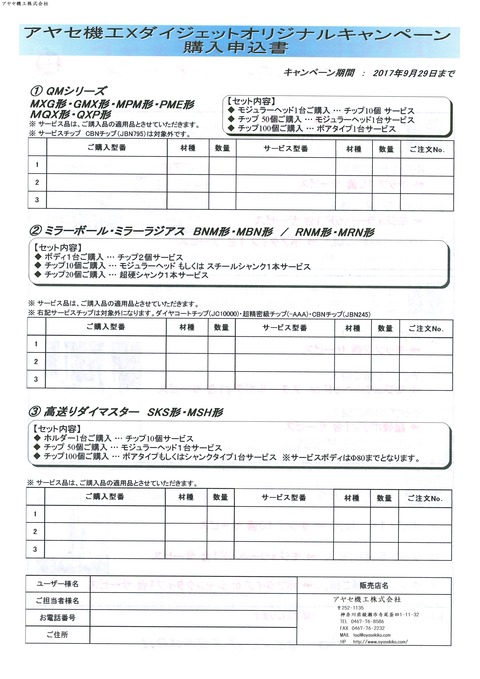 アヤセ機工株式会社
アヤセ機工×ダイジェットオリジナルキャンペーン
購入申込書
キャンペーン期間 : 2017年9月29日まで
① QMシリーズ
MXG形・GMX形・MPM形・PME形
MQX形・QXP形
※ サービス品は、ご購入品の適用品とさせていただきます。
※ サービスチップ CBNチップ(JBN795)は対象外です。
【セット内容】
◆ モジュラーヘッド1台ご購入 … チップ10個 サービス
◆ チップ 50個ご購入 … モジュラーヘッド1台サービス
◆ チップ100個ご購入 … ボアタイプ1台サービス
ご購入型番 材種 数量 サービス型番 材種 数量 ご注文No.
1
2
3
② ミラーボール・ミラーラジアス BNM形・MBN形 / RNM形・MRN形
【セット内容】
◆ ボディ1台ご購入 … チップ2個サービス
◆ チップ10個ご購入 … モジュラーヘッド もしくは スチールシャンク1本サービス
◆ チップ20個ご購入 … 超硬シャンク1本サービス
※ サービス品は、ご購入品の適用品とさせていただきます。
※ 右記サービスチップは対象外になります。ダイヤコートチップ(JC10000)・超精密級チップ(-AAA)・CBNチップ(JBN245)
ご購入型番 材種 数量 サービス型番 材種 数量 ご注文No.
1
2
3
③ 高送りダイマスター SKS形・MSH形
【セット内容】
◆ ホルダー1台ご購入 … チップ10個サービス
◆ チップ 50個ご購入 … モジュラーヘッド1台サービス
◆ チップ100個ご購入 … ボアタイプもしくはシャンクタイプ1台サービス ※サービスボディはΦ80までとなります。
※ サービス品は、ご購入品の適用品とさせていただきます。
ご購入型番 材種 数量 サービス型番 材種 数量 ご注文No.
1
2
3
ユーザー様名
ご担当者様名
お電話番号
ご住所
販売店名
アヤセ機工株式会社
〒252-1135
神奈川県綾瀬市寺尾釜田1-11-32
TEL 0467-76-8586
FAX 0467-76-2232